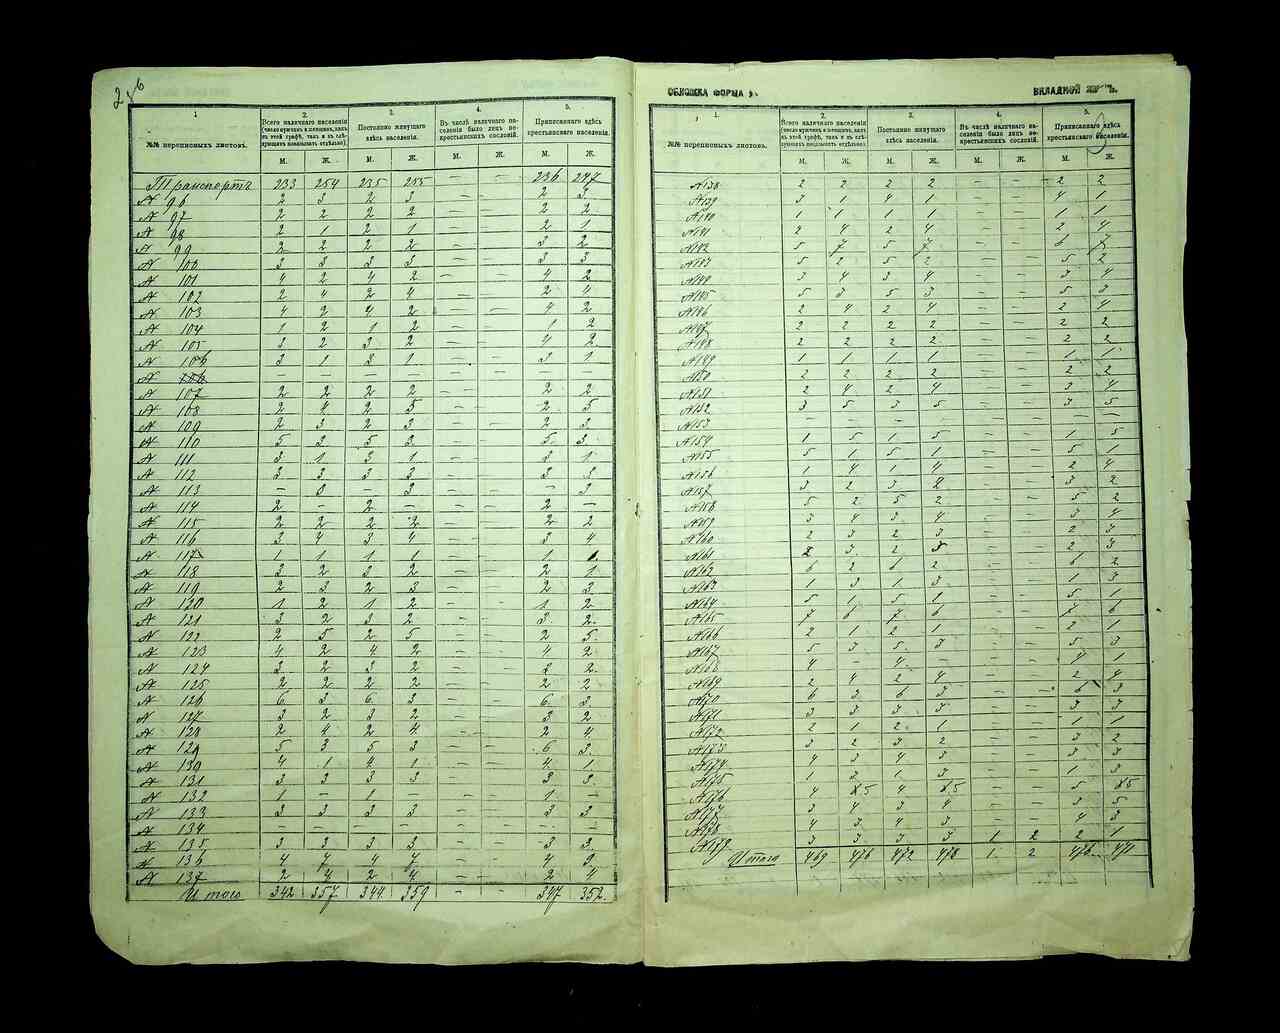 ОБЛОЖКА ФОРМА
ВКЛАДНОЙ
1
2.
3.
4.
5.
№№ переписныхъ листовъ.
Всего наличнаго населенія
(число мужчинъ и женщинъ, какъ
въ этой графѣ, такъ и въ слѣ-
дующихъ показывать отдѣльно).
Постоянно живущаго
здѣсь населенія.
Въ числѣ наличнаго на-
селенія было лицъ не-
крестьянскихъ сословій.
Приписаннаго здѣсь
крестьянскаго населенія.
М. Ж. М. Ж. М. Ж. М. Ж.
Транспортъ 233 254 235 255 — — 236 247
№ 96 2 3 2 3 — — 2 3
№ 97 2 2 2 2 — — 2 2
№ 98 2 1 2 1 — — 2 1
№ 99 2 2 2 2 — — 3 2
№ 100 3 3 3 3 — — 3 3
№ 101 4 2 4 2 — — 4 2
№ 102 2 4 2 4 — — 2 4
№ 103 4 2 4 2 — — 4 2
№ 104 1 2 1 2 — — 1 2
№ 105 3 2 3 2 — — 4 2
№ 106 3 1 3 1 — — 3 1
№ 106 — — — — — — — —
№ 107 2 2 2 2 — — 2 2
№ 108 2 4 2 5 — — 2 5
№ 109 2 3 2 3 — — 2 3
№ 110 5 3 5 3 — — 5 3
№ 111 3 1 3 1 — — 3 1
№ 112 3 3 3 3 — — 3 3
№ 113 — 3 — 3 — — — 3
№ 114 2 — 2 — — — 2 —
№ 115 2 2 2 2 — — 2 2
№ 116 3 4 3 4 — — 3 4
№ 117 1 1 1 1 — — 1 1
№ 118 3 2 3 2 — — 2 1
№ 119 2 3 2 3 — — 2 3
№ 120 1 2 1 2 — — 1 2
№ 121 3 2 3 2 — — 3 2
№ 122 2 5 2 5 — — 2 5
№ 123 4 2 4 2 — — 4 2
№ 124 3 2 3 2 — — 3 2
№ 125 2 2 2 2 — — 2 2
№ 126 6 3 6 3 — — 6 3
№ 127 3 2 3 2 — — 3 2
№ 128 2 4 2 4 — — 2 4
№ 129 5 3 5 3 — — 6 3
№ 130 4 1 4 1 — — 4 1
№ 131 3 3 3 3 — — 3 3
№ 132 1 — 1 — — — 1 —
№ 133 3 3 3 3 — — 3 3
№ 134 — — — — — — — —
№ 135 3 3 3 3 — — 3 3
№ 136 4 4 4 4 — — 4
№ 137 2 4 2 4 — — 2 4
Итого 342 357 344 359 — — 347 352
1.
2.
3.
4.
5.
№№ переписныхъ листовъ.
Всего наличнаго населенія
(число мужчинъ и женщинъ, какъ
въ этой графѣ, такъ и въ слѣ-
дующихъ показывать отдѣльно).
Постоянно живущаго
здѣсь населенія.
Въ числѣ наличнаго на-
селенія было лицъ не-
крестьянскихъ сословій.
Приписаннаго здѣсь
крестьянскаго населенія.
М. Ж. М. Ж. М. Ж. М. Ж.
№138 2 2 2 2 — — 2 2
№139 3 1 4 1 — — 4 1
№140 1 1 1 1 — — 1 1
№141 2 4 2 4 — — 2 4
№142 5 7 5 7 — — 6 7
№143 5 2 5 2 — — 5 2
№144 3 4 3 4 — — 3 4
№145 5 3 5 3 — — 5 3
№146 2 4 2 4 — — 2 4
№147 2 2 2 2 — — 2 2
№148 2 2 2 2 — — 2 2
№149 1 1 1 1 — — 1 1
№150 2 2 2 2 — — 2 2
№151 2 4 2 4 — — 3 4
№152 3 5 3 5 — — 3 5
№153 — — — — — — — —
№154 1 5 1 5 — — 1 5
№155 5 1 5 1 — — 5 1
№156 1 4 1 4 — — 2 4
№157 3 2 3 2 — — 3 2
№158 5 2 5 2 — — 5 2
№159 3 4 3 4 — — 3 4
№160 2 3 2 3 — — 2 3
№161 2 3 2 3 — — 2 3
№162 6 2 6 2 — — 6 2
№163 1 3 1 3 — — 1 3
№164 5 1 5 1 — — 5 1
№165 7 6 7 6 — — 7 6
№166 2 1 2 1 — — 2 1
№167 5 3 5 3 — — 5 3
№168 4 — 4 — — — 4 1
№169 2 4 2 4 — — 2 4
№170 6 3 6 3 — — 6 3
№171 3 3 3 3 — — 3 3
№172 2 1 2 1 — — 1 1
№173 3 2 3 2 — — 3 2
№174 4 3 4 3 — — 3 3
№175 1 2 1 3 — — 1 3
№176 4 5 4 5 — — 5 5
№177 3 4 3 4 — — 3 5
№178 4 3 4 3 — — 4 3
№179 3 3 3 3 1 2 2 1
Итого 469 476 472 478 1 2 476 471